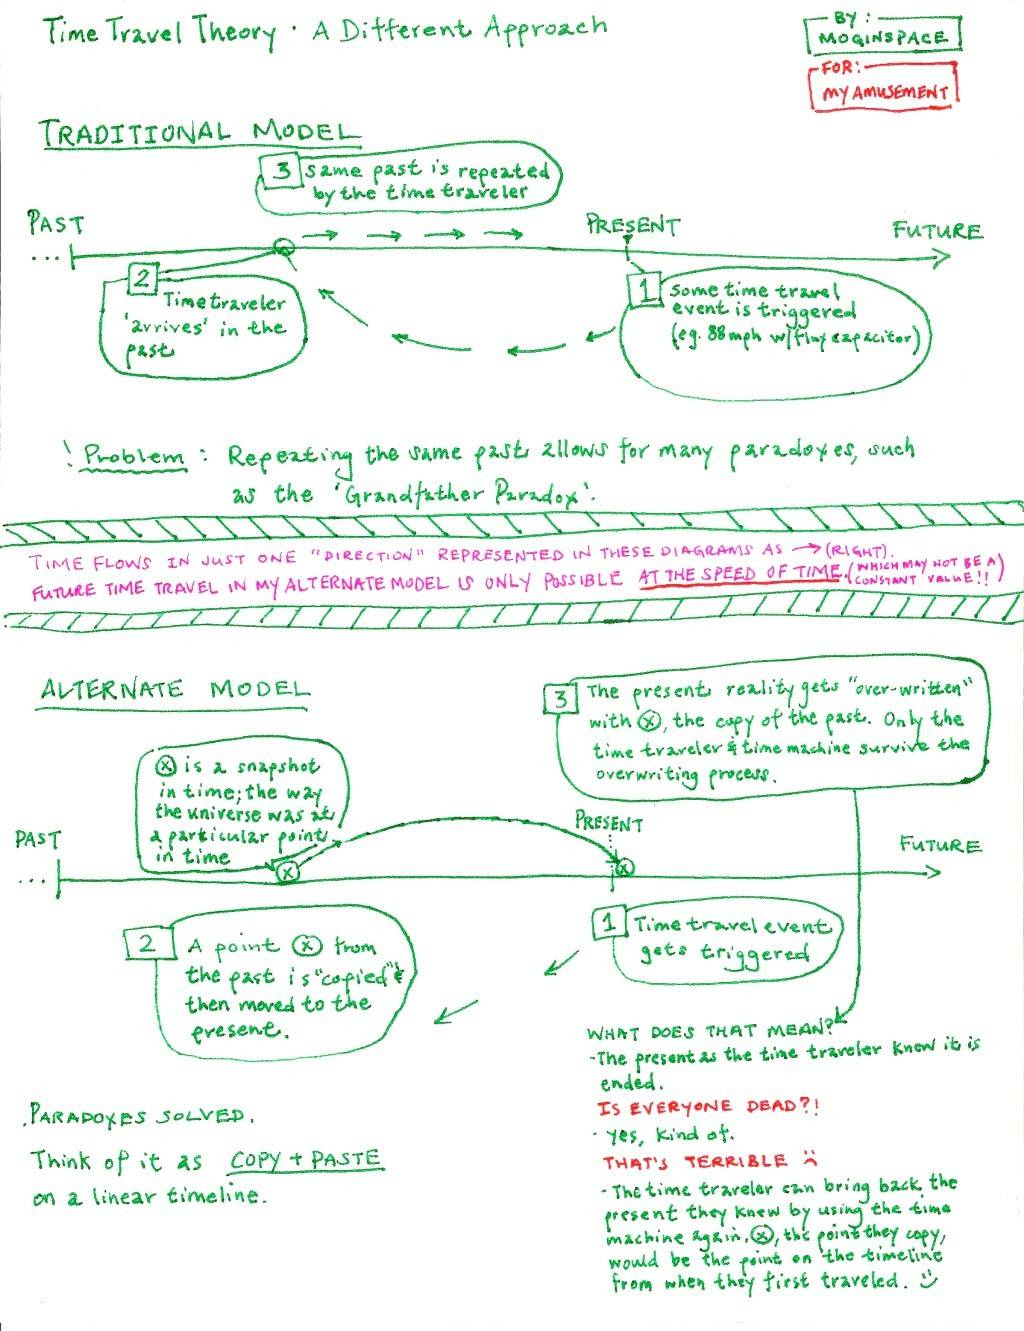 Time Travel Theory · A Different Approach
BY:
MOGINSPACE
FOR:
MY AMUSEMENT
TRADITIONAL MODEL
3 Same past is repeated
by the time traveler
PAST
PRESENT
FUTURE
...
2
Time traveler
'arrives' in the
past
1 Some time travel
event is triggered
(eg. 88mph w/flux capacitor)
! Problem: Repeating the same past allows for many paradoxes, such
as the 'Grandfather Paradox'.
TIME FLOWS IN JUST ONE "DIRECTION" REPRESENTED IN THESE DIAGRAMS AS → (RIGHT).
FUTURE TIME TRAVEL IN MY ALTERNATE MODEL IS ONLY POSSIBLE AT THE SPEED OF TIME. (WHICH MAY NOT BE A
CONSTANT VALUE!!)
ALTERNATE MODEL
3 The present reality gets "over-written"
with ⓧ, the copy of the past. Only the
time traveler & time machine survive the
overwriting process.
ⓧ is a snapshot
in time; the way
the universe was at
a particular point
in time
PAST
PRESENT
FUTURE
...
ⓧ
ⓧ
2 A point ⓧ from
the past is "copied" &
then moved to the
present.
1 Time travel event
gets triggered
WHAT DOES THAT MEAN?
-The present as the time traveler knew it is
ended.
IS EVERYONE DEAD?!
- yes, kind of.
THAT'S TERRIBLE :(
- The time traveler can bring back the
present they knew by using the time
machine again. ⓧ, the point they copy,
would be the point on the timeline
from when they first traveled. :)
.PARADOXES SOLVED.
Think of it as COPY + PASTE
on a linear timeline.